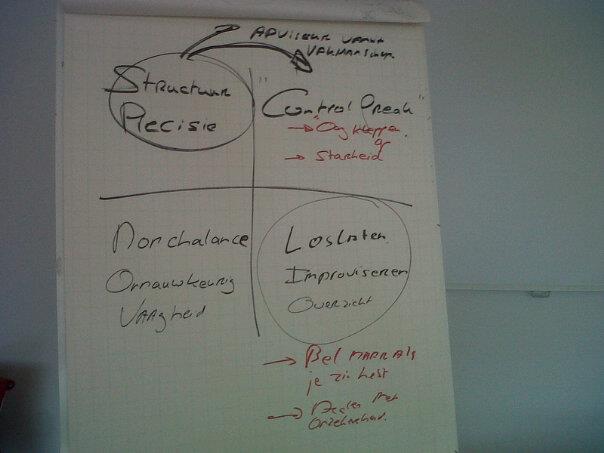 ADVISEUR VANUIT
VAKMANSCHAP.
Structuur
Precisie
"Control Freak"
→ Oogkleppen op
→ Starheid
Nonchalance
Onnauwkeurig
Vaagheid
Loslaten
Improviseren
Overzicht
→ Bel maar als
je zin hebt
→ Dealen met
onzekerheid.